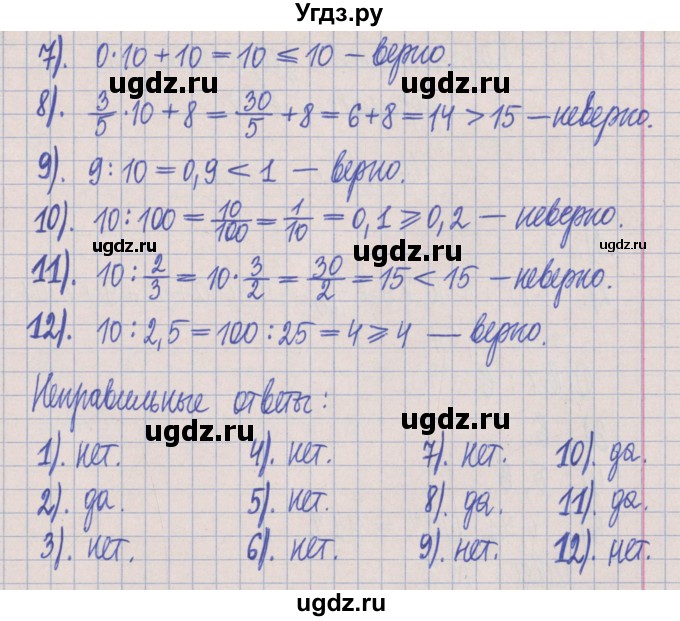 Угдз.ру
7). 0·10+10=10⩽10 – верно.
ugdz.ru ugdz.ru
8). 3/5·10+8=30/5+8=6+8=14>15 – неверно.
9). 9:10=0,9<1 – верно.
10). 10:100=10/100=1/10=0,1⩾0,2 – неверно.
ugdz.ru ugdz.ru ugdz.ru
11). 10:2/3=10·3/2=30/2=15<15 – неверно.
12). 10:2,5=100:25=4⩾4 — верно.
Неправильные ответы:
ugdz.ru ugdz.ru
1). нет. 4). нет. 7). нет. 10). да.
2). да. 5). нет. 8). да. 11). да.
3). нет. 6). нет. 9). нет. 12). нет.
ugdz.ru